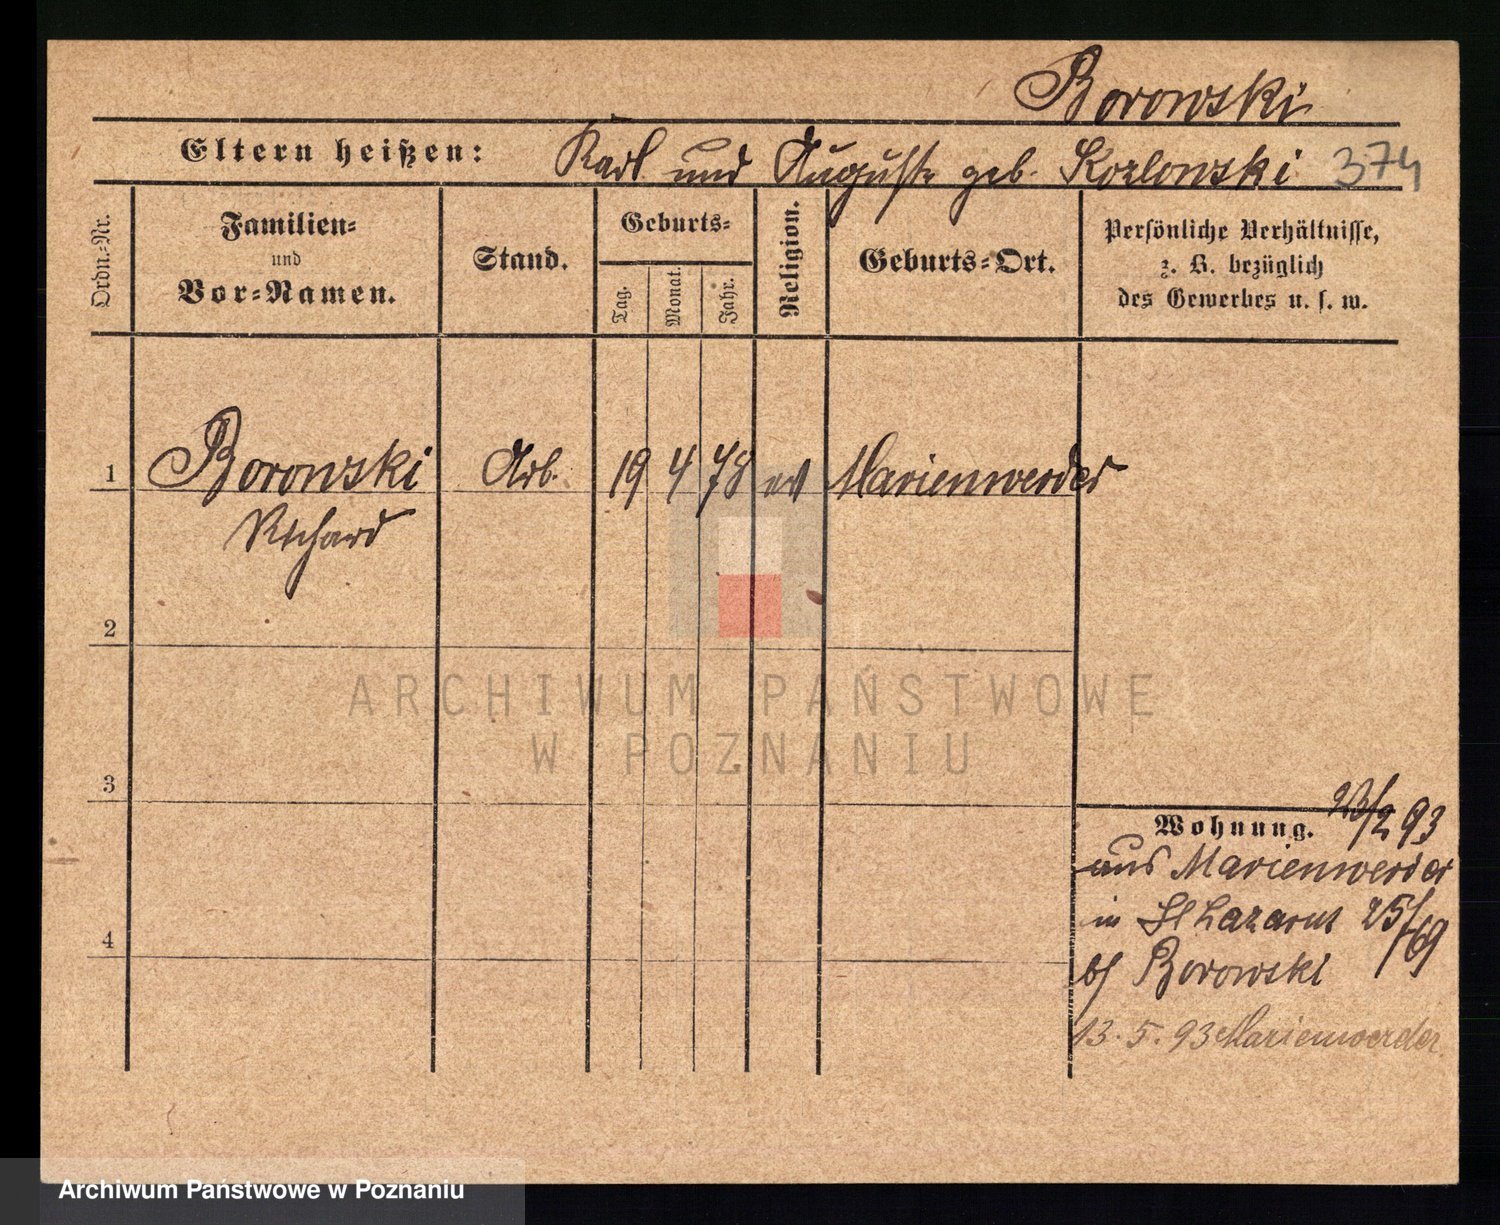 Borowski
Eltern heißen: Karl und Auguste geb. Kozlowski 374
Ordn.=Nr.
Familien=
und
Vor=Namen.
Stand.
Geburts=
Tag.
Monat.
Jahr.
Religion.
Geburts=Ort.
Persönliche Verhältnisse,
z. B. bezüglich
des Gewerbes u. s. w.
1 Borowski Arb. 19 4 78 ev Marienwerder
Richard
2
3
4
Wohnung. 23/2 93
aus Marienwerder
in St Lazarus 25/69
b/ Borowski
13. 5. 93 Marienwerder.
ARCHIWUM PAŃSTWOWE
W POZNANIU
Archiwum Państwowe w Poznaniu